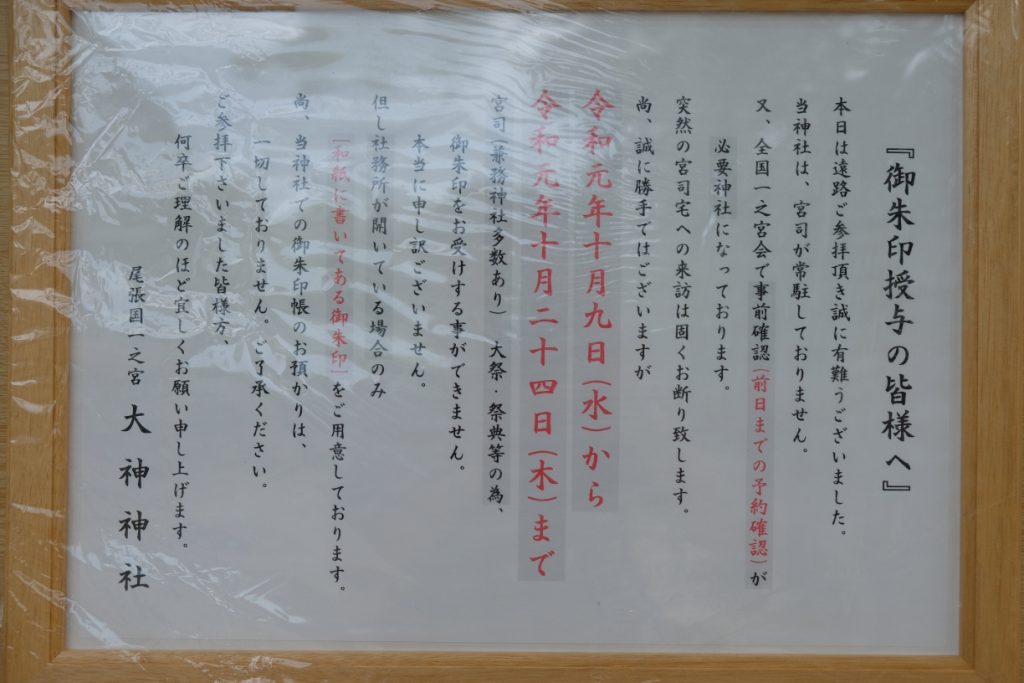 『御朱印授与の皆様へ』
本日は遠路ご参拝頂き誠に有難うございました。
当神社は、宮司が常駐しておりません。
又、全国一之宮会で事前確認（前日までの予約確認）が
必要神社になっております。
突然の宮司宅への来訪は固くお断り致します。
尚、誠に勝手ではございますが
令和元年十月九日（水）から
令和元年十月二十四日（木）まで
宮司（兼務神社多数あり）　大祭・祭典等の為、
御朱印をお受けする事ができません。
本当に申し訳ございません。
但し社務所が開いている場合のみ
「和紙に書いてある御朱印」をご用意しております。
尚、当神社での御朱印帳のお預かりは、
一切しておりません。ご了承ください。
ご参拝下さいました皆様方、
何卒ご理解のほど宜しくお願い申し上げます。
尾張国一之宮　大神神社